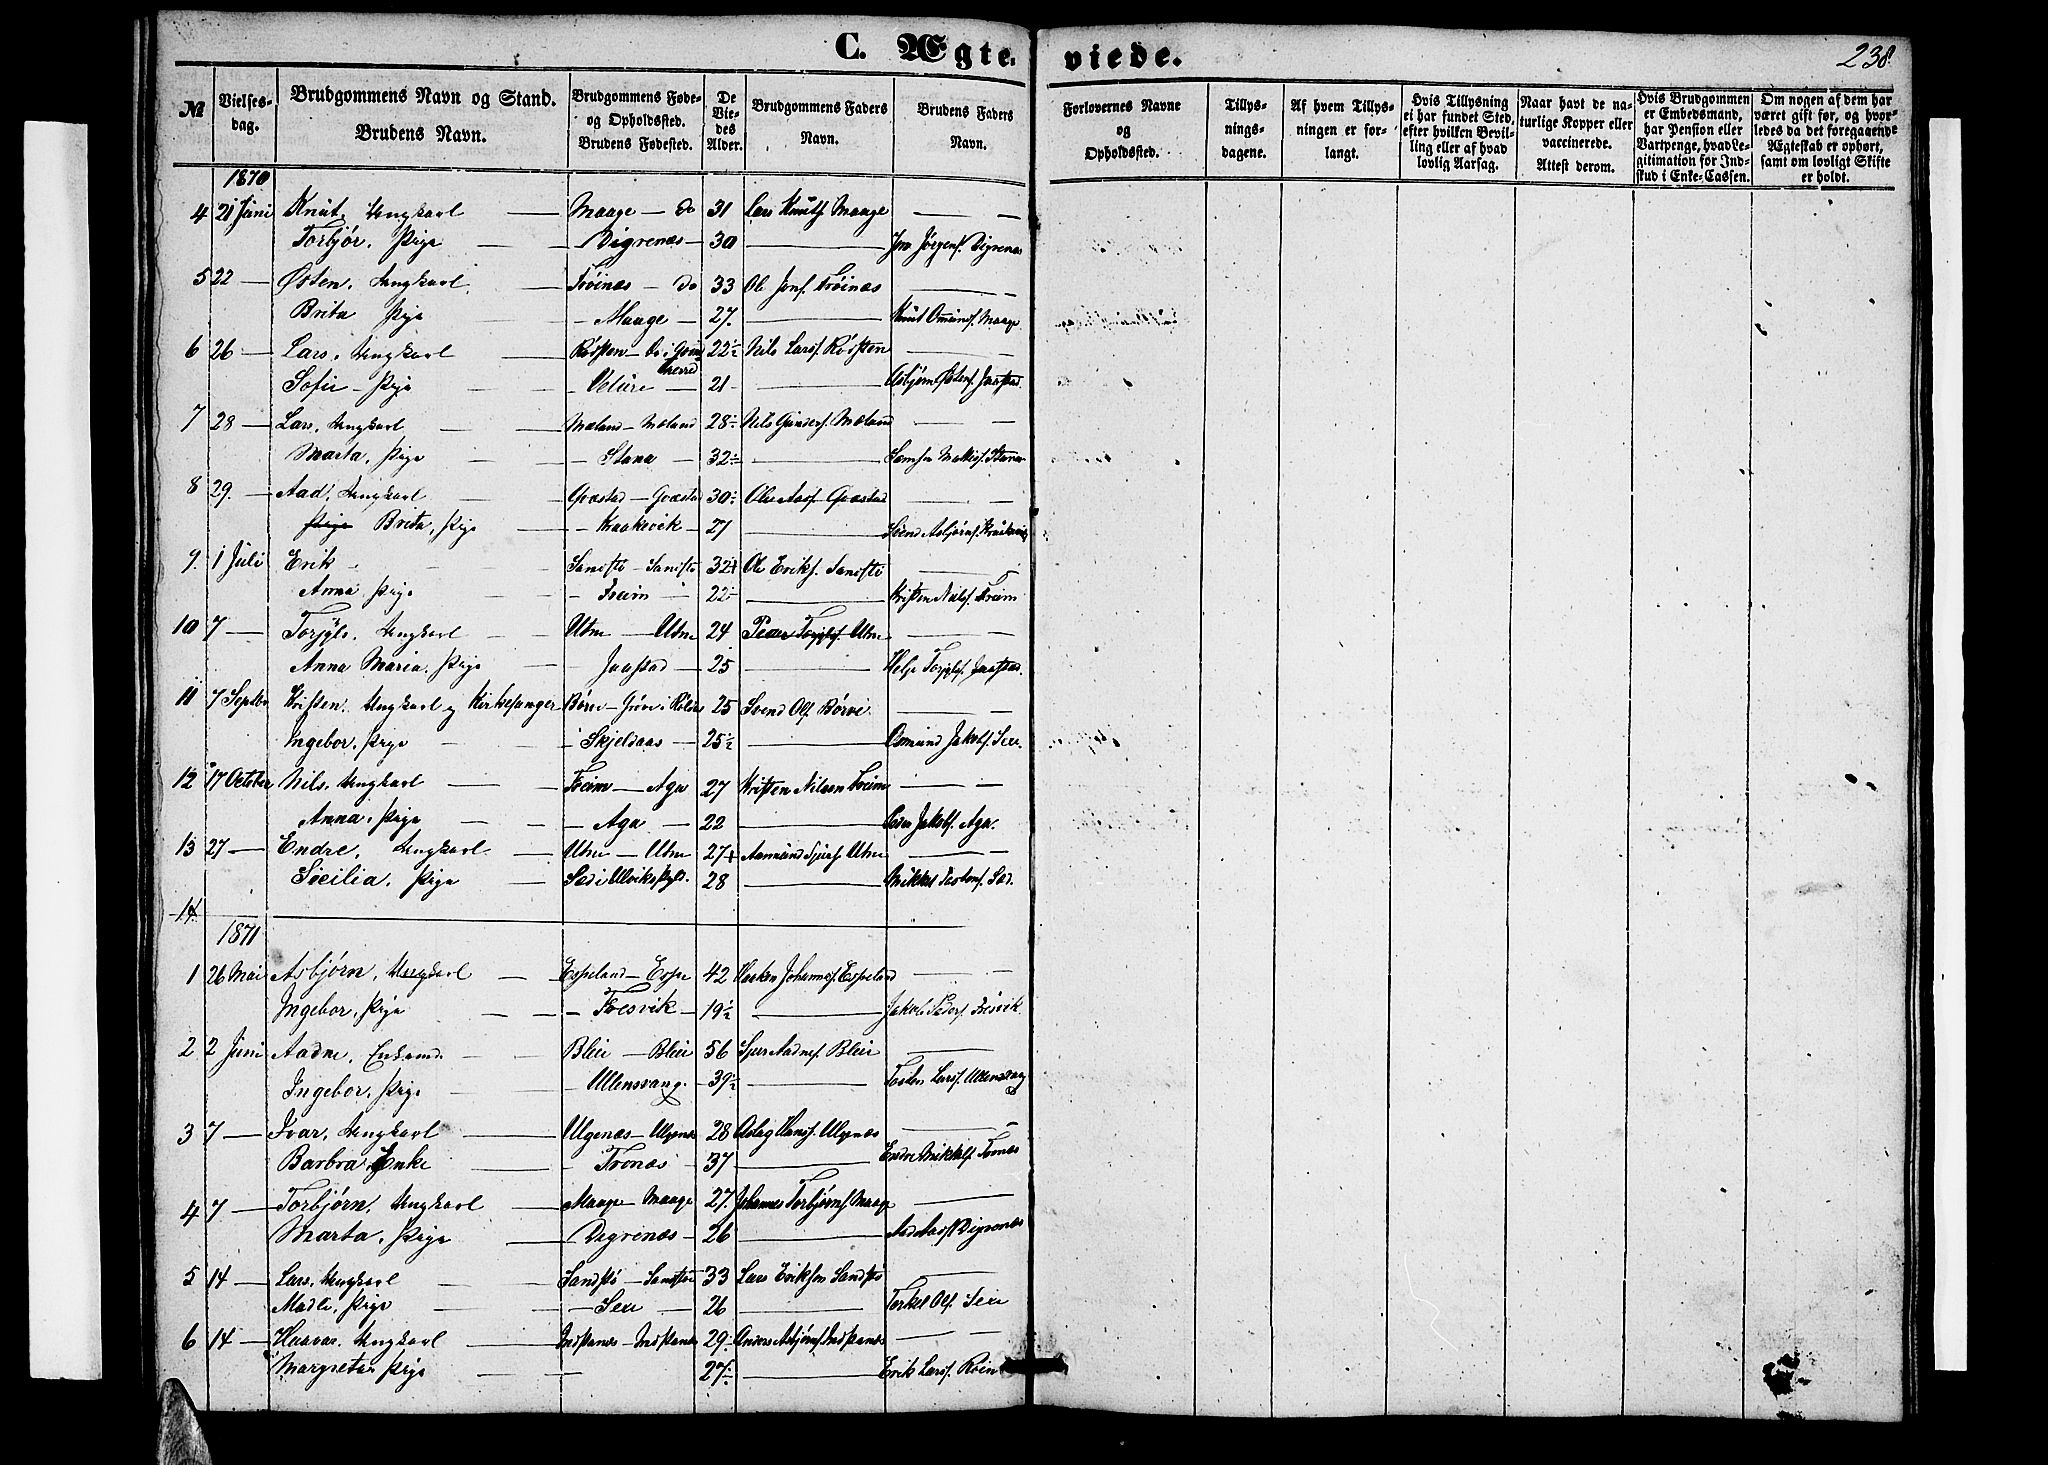 C. Ægte-
viede.
238
№
Vielses-
dag.
Brudgommens Navn og Stand.
Brudens Navn.
Brudgommens Føde-
og Opholdssted.
Brudens Fødested.
De
Vie-
des
Alder.
Brudgommens Faders
Navn.
Brudens Faders
Navn.
Forlovernes Navne
og
Opholdssted.
Tillys-
nings-
dagene.
Af hvem Tillys-
ningen er for-
langt.
Hvis Tillysning
ei har fundet Sted,
efter hvilken Bevil-
ling eller af hvad
lovlig Aarsag.
Naar havt de na-
turlige Kopper eller
vaccinerede.
Attest derom.
Hvis Brudgommen
er Embedsmand,
har Pension eller
Vartpenge, hvad Le-
gitimation for Ind-
skud i Enke-Cassen.
Om nogen af dem har
været gift før, og hvor-
ledes da det foregaaende
Ægteskab er ophørt,
samt om lovligt Skifte
er holdt.
1870
4 21 Juni Knut, Ungkarl — Maage — do 31 Lars Knuts. Maage — —
Torbjør, Pige — — Digrenæs — 30 — Jon Jørgens. Digrenæs
5 22 — Østen, Ungkarl — Trøinæs — do 33 Ole Jons. Trøinæs — —
Brita Pige — — Maage — 27 — Knut Omunds. Maage
6 26 — Lars, Ungkarl — Rødsten — do i Gvind 22½ Nils Lars. Rødsten — —
herred
Sofie — Pige — — Velure — 21 — Asbjørn Østens. Jaastad
7 28 — Lars, Ungkarl — Mæland — Mæland 28 Nils Gunders. Mæland — —
Marta, Pige — — Stana — 32½
8 29. — Aad, Ungkarl — Qvæstad — Qvæstad 30 Ole Aads. Qvæstad — —
Pige Brita, Pige — — Kraakevik — 27 — Svend Asbjørns. Kraakevik
9 1 Juli Erik — — 32 Ole Eriks.
Anna Pige — — Freim — 22 — Kristen Nils. Freim
10 7 — Torjyls, Ungkarl — Utne — Utne 24 Peder Torjyls. Utne — —
Anna Maria, Pige — Jaastad — 25 — Helje Torjyls. Jaastad
11 7 Septbr Kristen, Ungkarl og Kirkesanger Børve — Grøve i Røldal 25 Svend Ols. Børve — —
Ingebor, Pige — — Skjeldaas — 25½ — Osmund Jakobs. Sexe
12 17 October Nils, Ungkarl — Freim — Aga 27 Kristen Nilsen Freim — —
Anna, Pige — — Aga — 22 — Jakobs. Aga.
13 27 — Endre, Ungkarl — Utne — Utne 27 Aamund Sjurs. Utne — —
Sicilia, Pige — Sæd i Ulviks Pgld. 28 — Mikkel Sæd.
14.
1871
1 26 Mai Asbjørn, Ungkarl — Espeland — Espe 42 Haaken Johannes. Espeland — —
Ingebor, Pige — — Fresvik — 19½ — Jakob Peders. Fresvik
2 2 Juni Aadne, Enkemd. — — Bleie — Bleie 56 Sjur Aadnes. Bleie —
Ingebor, Pige — — Ullensvang — 39½ — Torsten Lars. Ullensvang
3 7 — Ivar, Ungkarl — Ulgenæs — Ulgenæs 28 Aslag Hans. Ulgnæs — —
Barbra, Enke — — Tronæs — 37 — Endre Mikkels. Tronæs
4 7 — Torbjørn, Ungkarl — Maage — Maage 27. Johannes Torbjørns. Maage —
Marta, Pige — Digrenæs — 26 — Aad Aads. Digrenæs
5 14 — Lars, Ungkarl — — Sandstø — Sandstø 33 Lars Eriksen Sandstø —
Madli, Pige — — Sexe — 26 — Torkel Ols. Sexe
6 14 — Haavar, Ungkarl — Indstanæs — Indstanæs 29 Anders Asbjørns. Indstanæs — —
Margreta Pige — — 27½ — Erik Lars. Røin